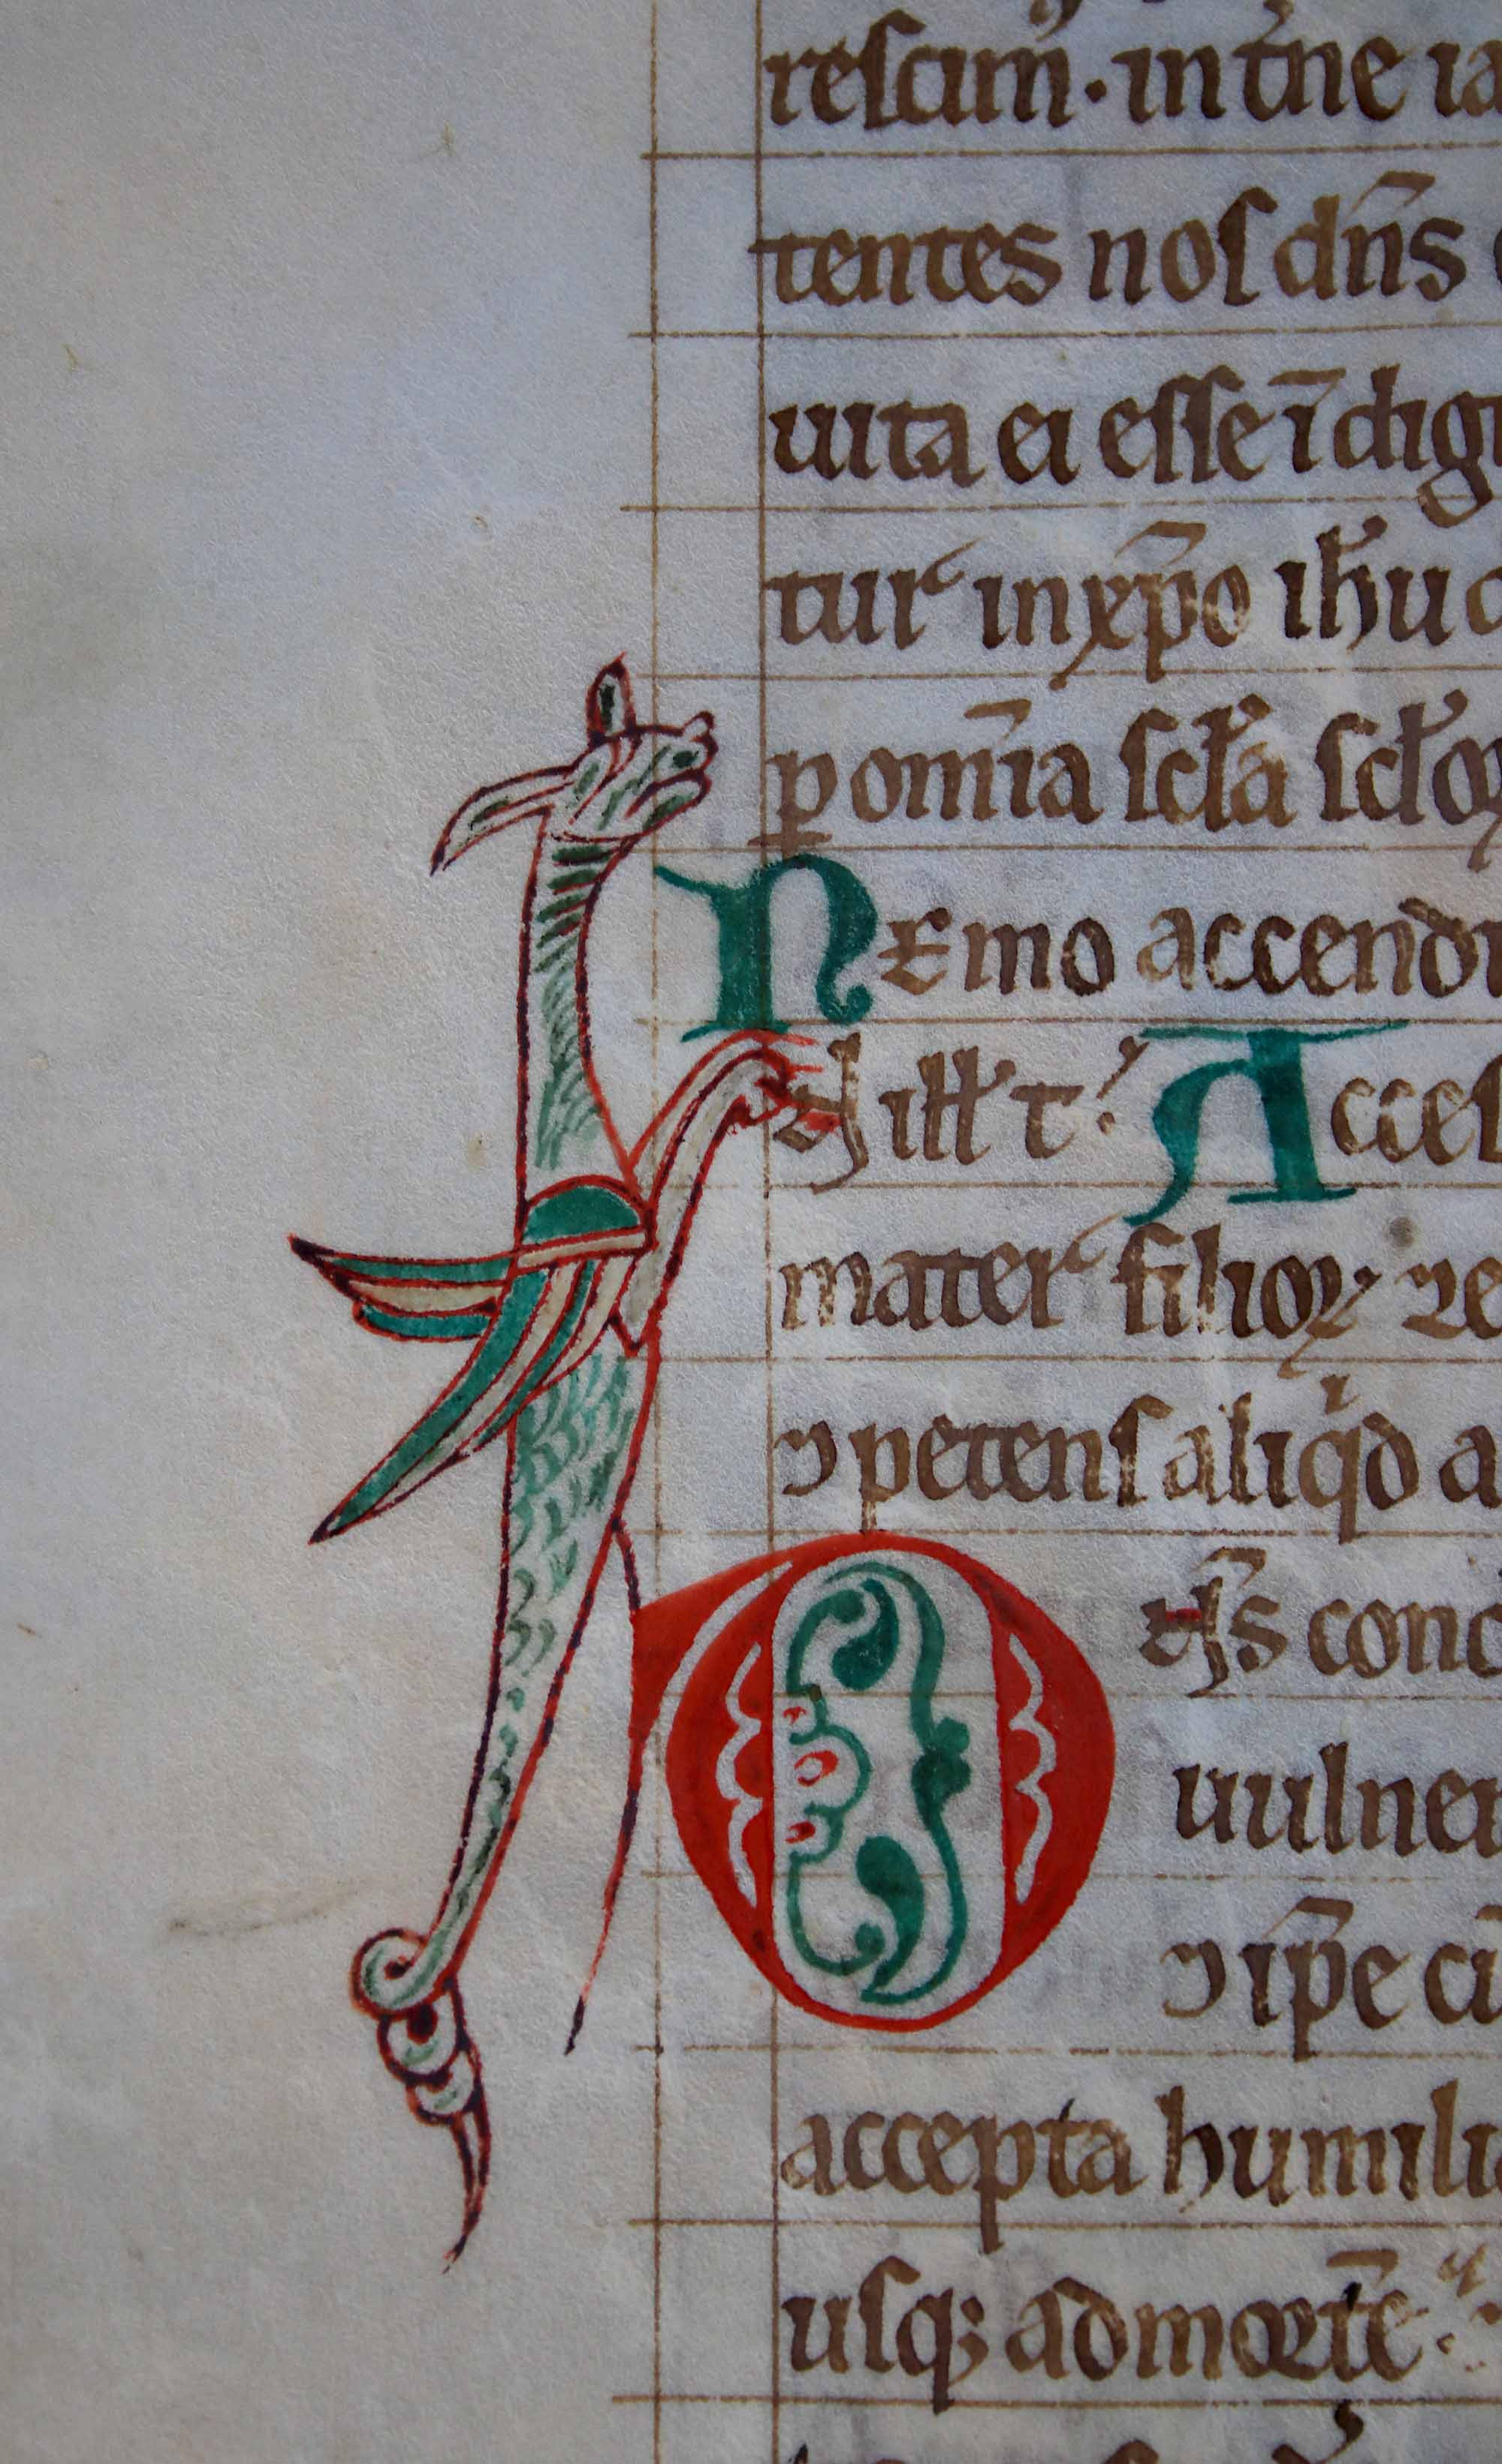 reſcim᷒· in t̄ne ia
tentes noſ dn̄s
uita ei eſſe ı̄ dıgı
tur᷒ in xp̄o ih̄u
ꝑ om̄ia ſcl̓a ſcl̓oꝝ
Nemo accendi
ill̓ t᷒ Acceſ
mater᷒ filioꝝ ze
petenſ aliqͥd a
D s̄ conc
uulner
ip̄e ci
accepta humili
uſqꝫ ad morte᷒